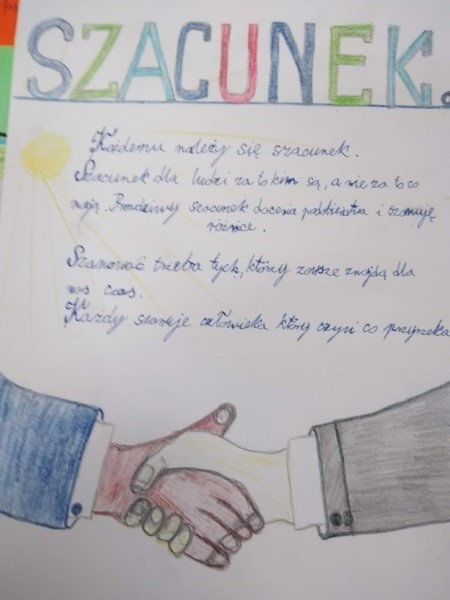 SZACUNEK.
Każdemu należy się szacunek.
Szacunek dla ludzi za to kim są, a nie za to co
mają. Prawdziwy szacunek docenia podobieństwa i szanuje
różnice.
Szanować trzeba tych, którzy zawsze znajdą dla
nas czas.
Każdy szanuje człowieka który czyni co przyrzeka